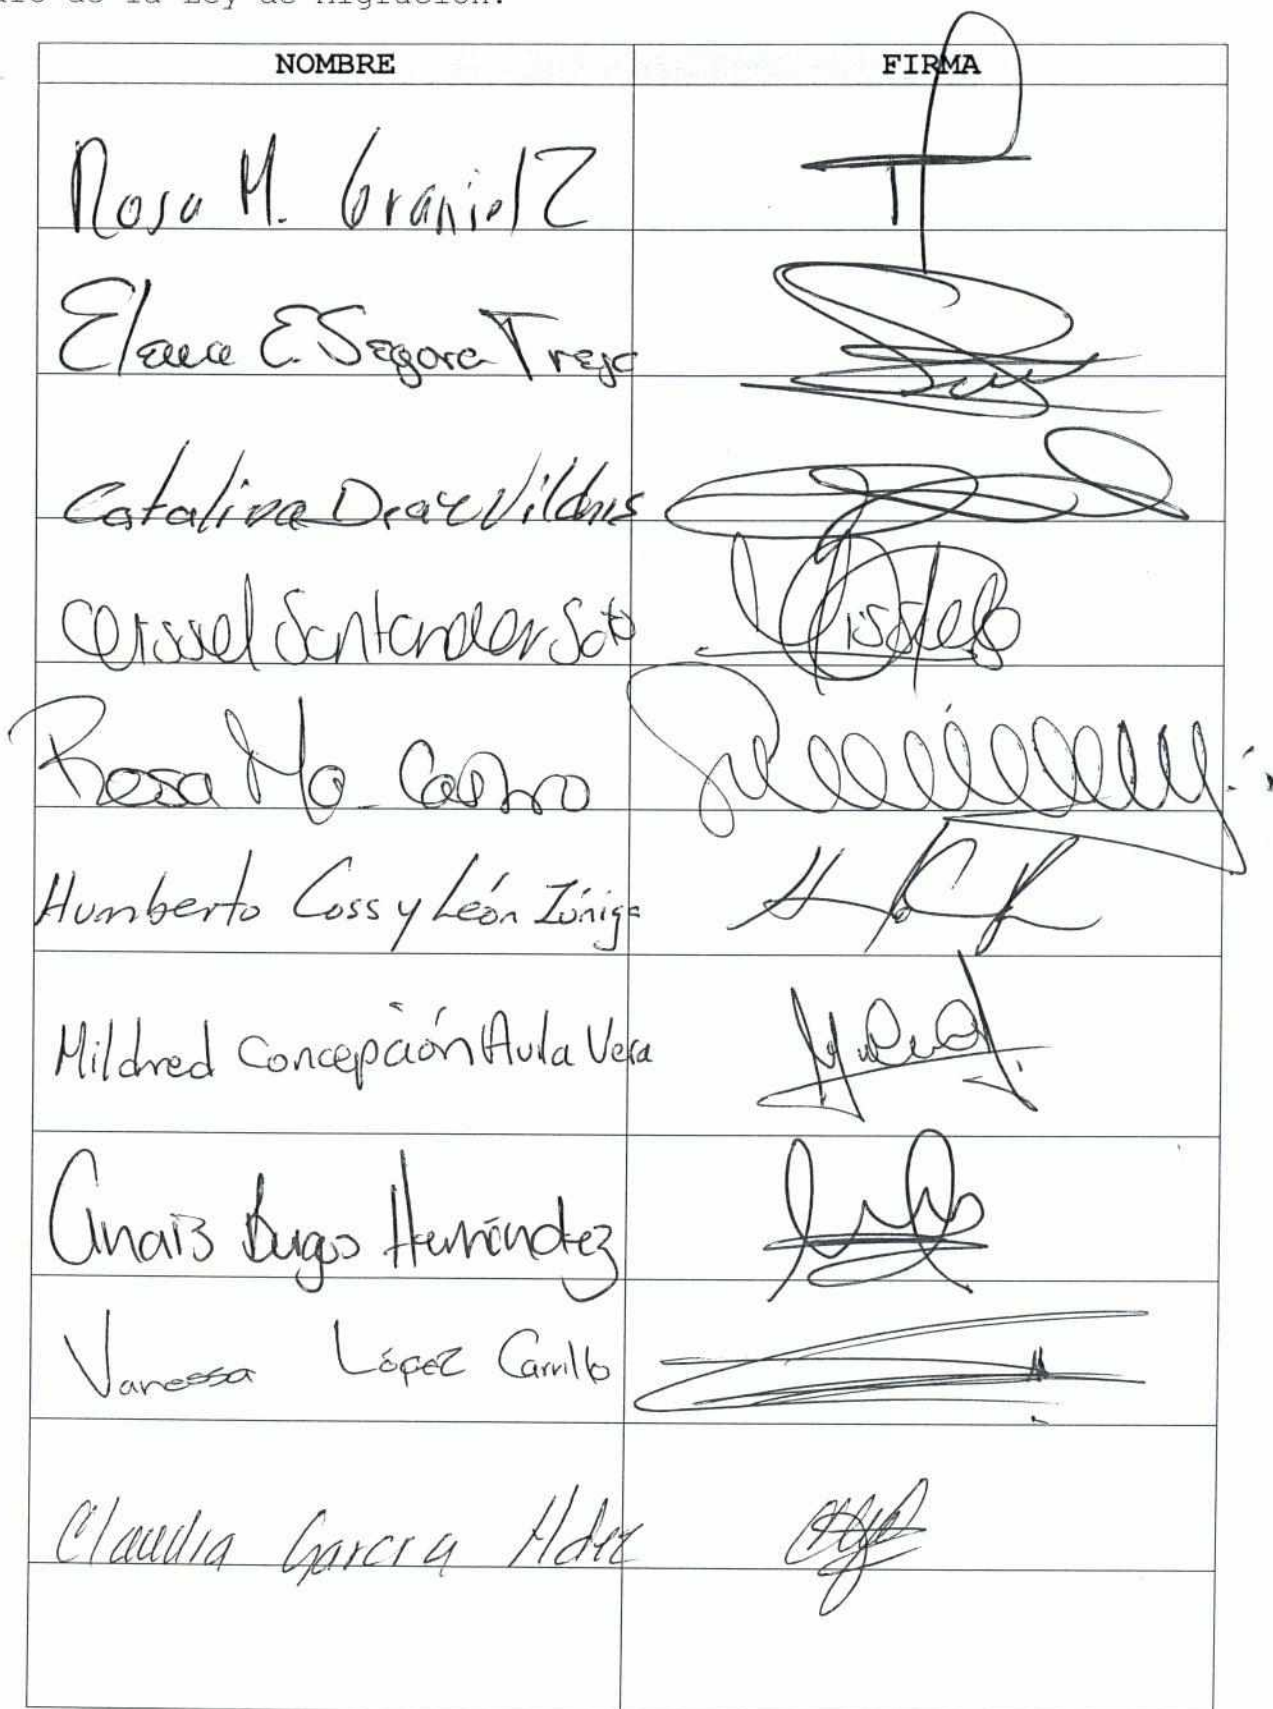 de la Ley de Migración.
NOMBRE FIRMA
Rosa M. Graniel Z
Elena E. Segora Trejo
Catalina Díaz Vilchis
Santander Soto
Rosa Ma. Castro
Humberto Coss y León Zúñiga
Mildred Concepción Avila Vera
Anaiz Burgos Hernández
Vanessa López Carrillo
Claudia Garcia Hdez